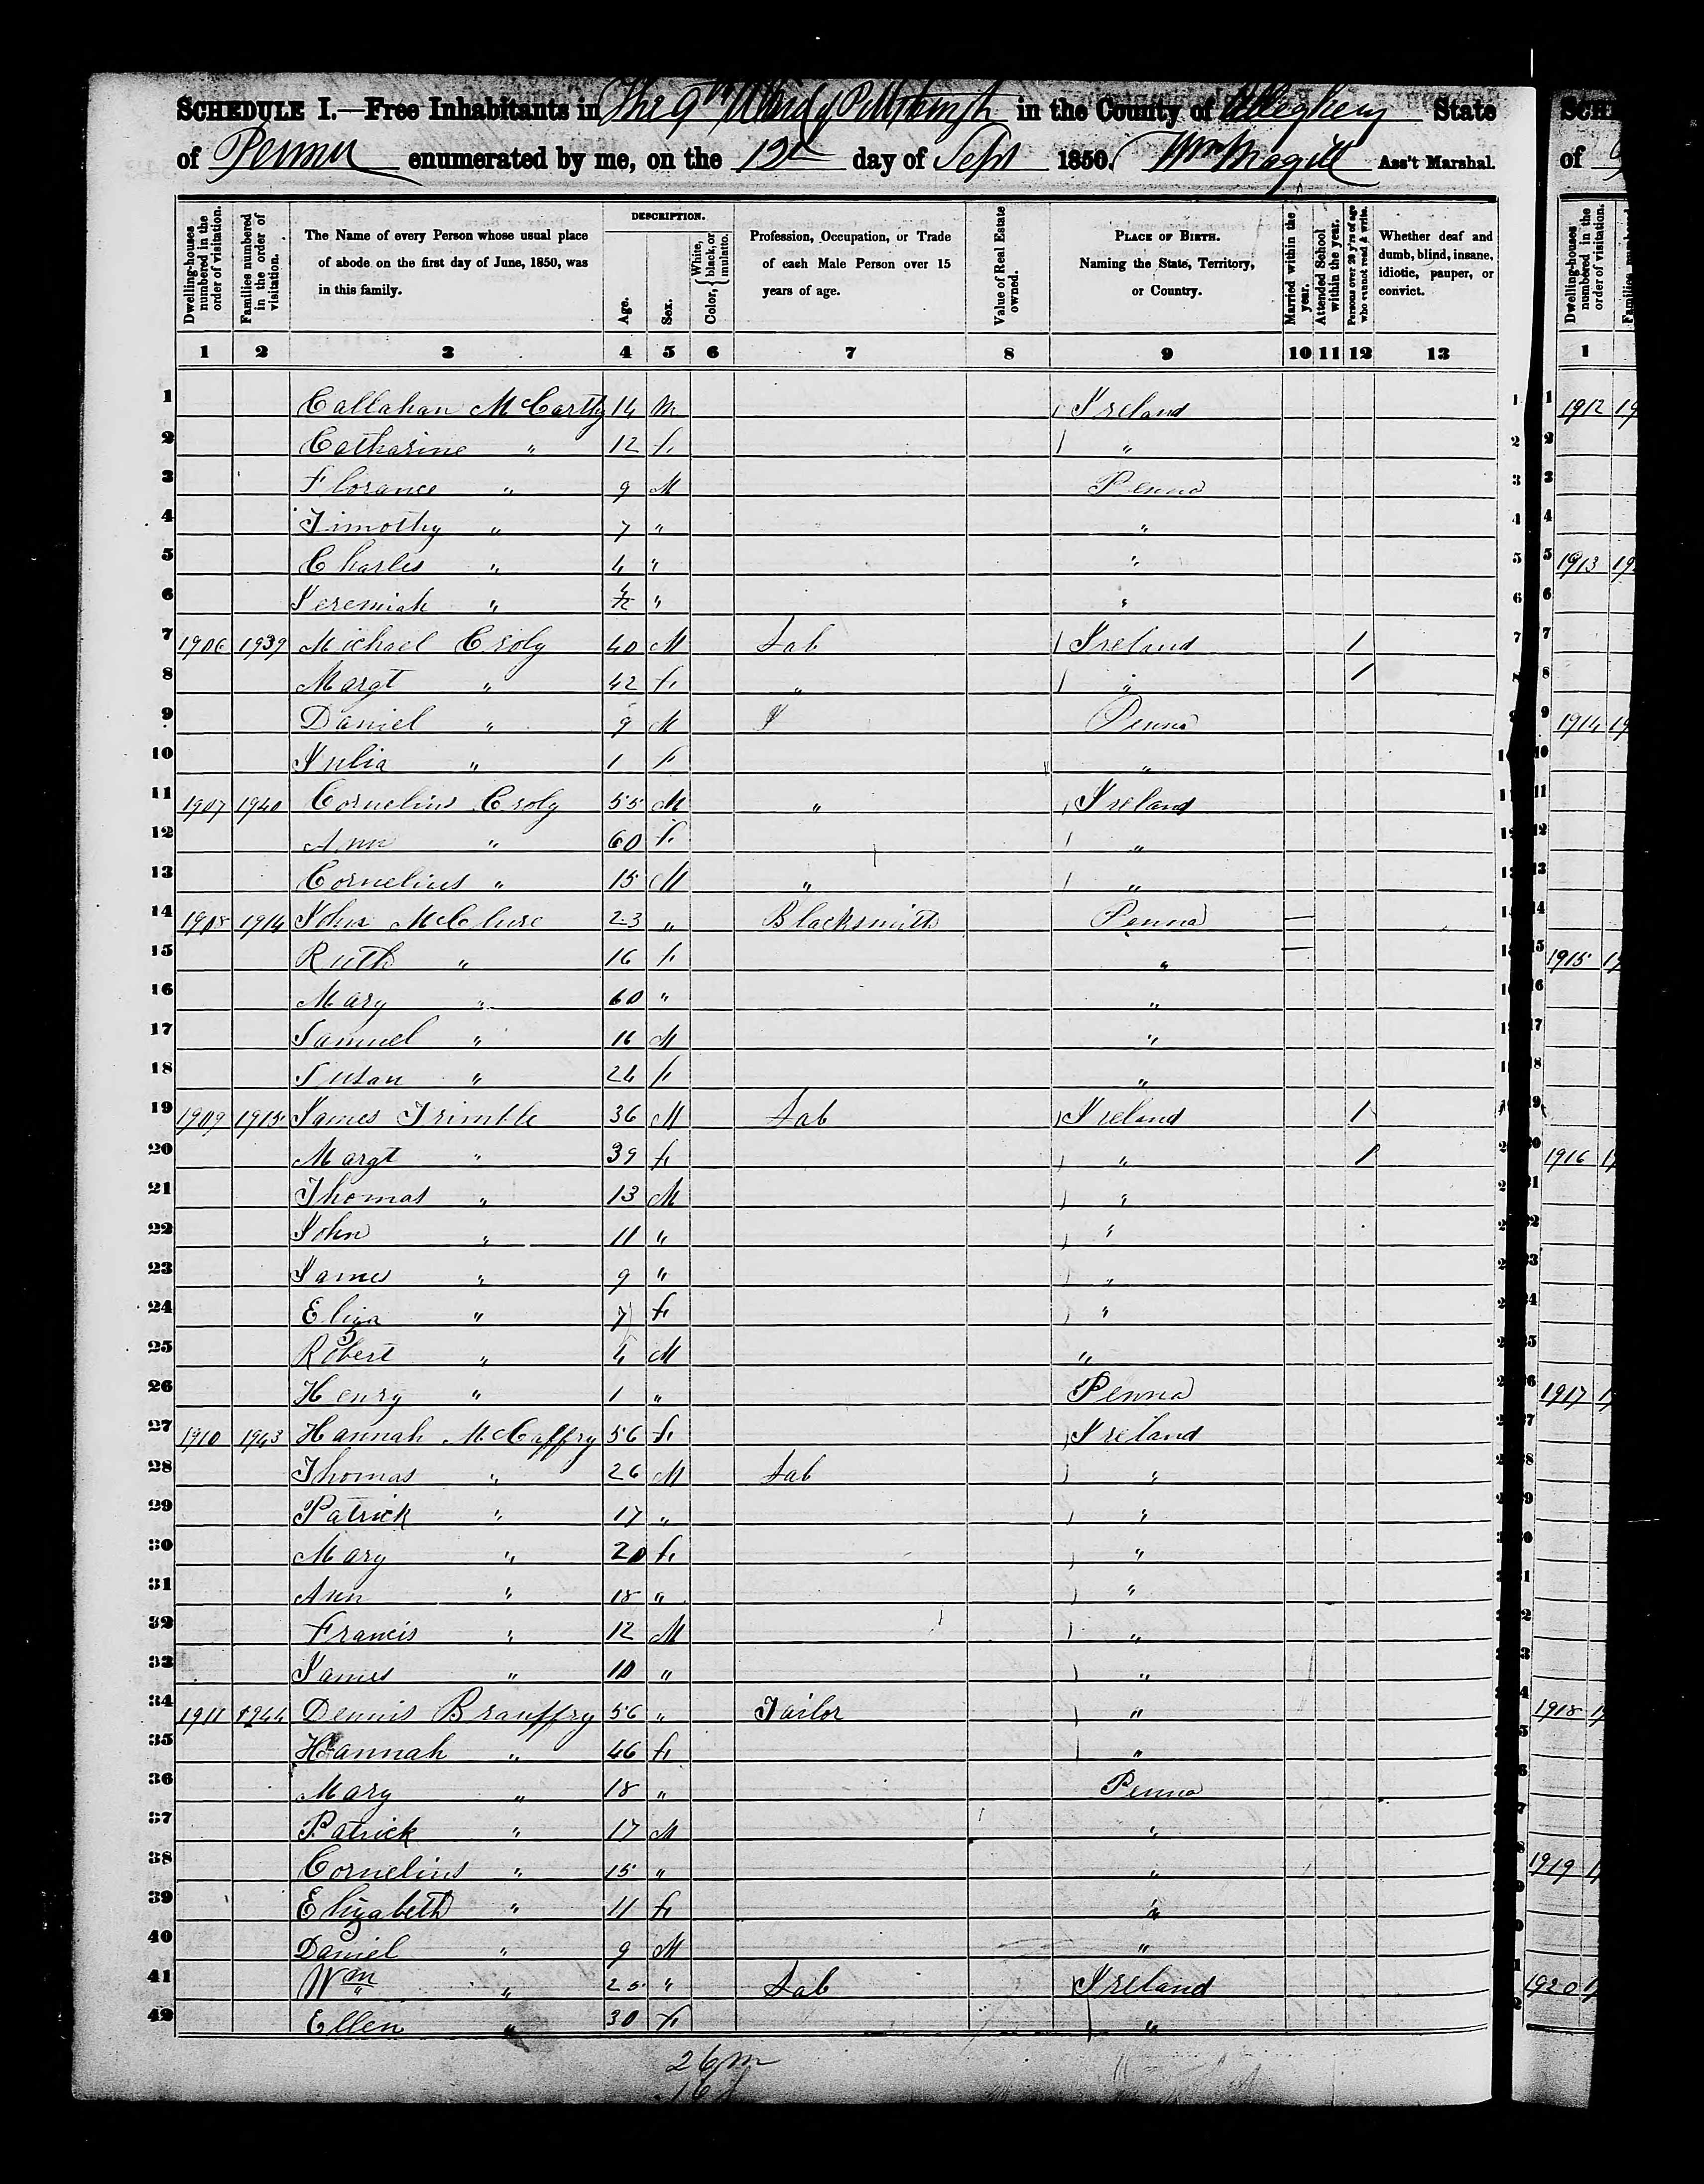 SCHEDULE I.—Free Inhabitants in The 9th Ward of Pittsburgh in the County of Allegheny State
of Penna enumerated by me, on the 12th day of Sept 1850. Wm Magill Ass't Marshal.
Dwelling-houses numbered in the order of visitation.
Families numbered in the order of visitation.
The Name of every Person whose usual place of abode on the first day of June, 1850, was in this family.
DESCRIPTION.
Age.
Sex.
Color, { White, black, or mulatto.
Profession, Occupation, or Trade of each Male Person over 15 years of age.
Value of Real Estate owned.
PLACE OF BIRTH. Naming the State, Territory, or Country.
Married within the year.
Attended School within the year.
Persons over 20 y'rs of age who cannot read & write.
Whether deaf and dumb, blind, insane, idiotic, pauper, or convict.
1 2 3 4 5 6 7 8 9 10 11 12 13
1 Callahan McCarthy 14 M Ireland 1
2 Catharine " 12 f " 2
3 Florance " 9 M Penna 3
4 Timothy " 7 " " 4
5 Charles " 4 " " 5
6 Jeremiah " " " 6
7 1906 1939 Michael Croly 40 M Lab Ireland 1 7
8 Margt " 42 f " " 1 8
9 Daniel " 9 M Penna 9
10 Julia " 1 f "
11 1907 1940 Cornelius Croly 55 M " Ireland
12 Ann " 60 f "
13 Cornelius " 15 M " "
14 1908 1914 John McClure 23 " Blacksmith Penna —
15 Ruth " 16 f " —
16 Mary " 60 " "
17 Samuel " 16 M "
18 Susan " 24 f "
19 1909 1915 James Trimble 36 M Lab Ireland 1
20 Margt " 39 f " 1
21 Thomas " 13 M "
22 John " 11 " "
23 James " 9 " "
24 Eliza " 7 f "
25 Robert " 4 M "
26 Henry " 1 " Penna
27 1910 1943 Hannah McCaffry 56 f Ireland
28 Thomas " 26 M Lab "
29 Patrick " 17 " "
30 Mary " 20 f "
31 Ann " 18 " "
32 Francis " 12 M "
33 James " 10 " "
34 1911 1944 Dennis Brauffry 56 " Tailor "
35 Hannah " 46 f "
36 Mary " 18 " Penna
37 Patrick " 17 M "
38 Cornelius " 15 " "
39 Elizabeth " 11 f "
40 Daniel " 9 M "
41 Wm " " Lab Ireland
42 Ellen " 30 f "
26 m
16 f
of
Dwelling-houses numbered in the order of visitation.
1
1912
1913
1914
1915
1916
1917
1918
1919
1920